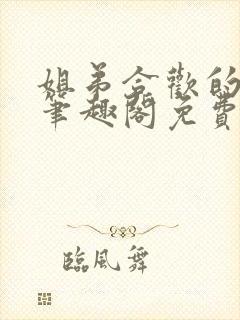 姐弟合歡的
筆趣閣免費
臨風舞